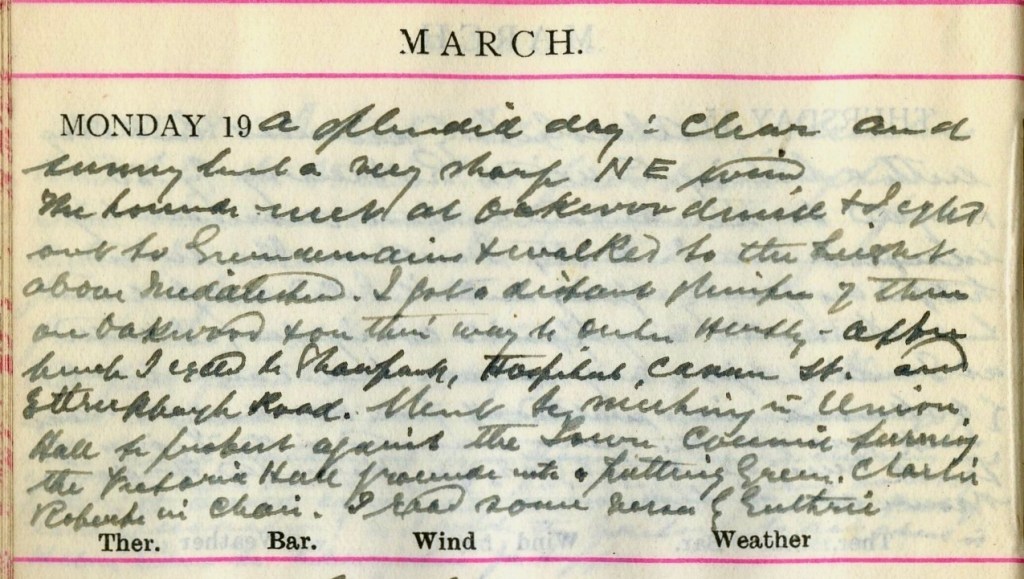 MARCH.
MONDAY 19 A splendid day: Clear and
sunny but a very sharp N E wind
The hounds met at Oakwood mill & I cycled
out to Greendemains & walked to the height
above Middlestead. I got a distant glimpse of them
on Oakwood & on their way to Outer Huntly - after
lunch I cycled to Shawpark, Hospital, Canon St. and
Ettrickhaugh Road. Went to meeting in Union
Hall to protest against the Town Council turning
the Victoria Hall grounds into a Putting Green. Charlie
Roberts in Chair. I read some verses by Guthrie
Ther. Bar. Wind Weather